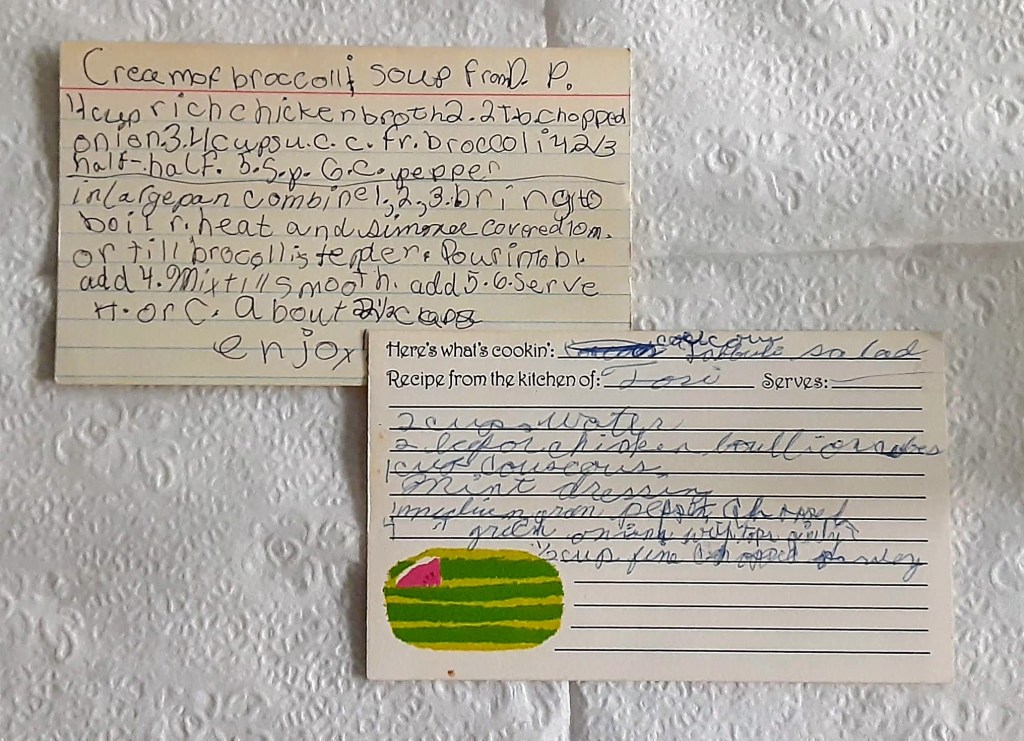 Cream of broccoli soup from D. P.
4 cup rich chicken broth 2. 2Tb. chopped
onion 3. 4 cups u.c.c. fr. broccoli 4 2/3
half-half. 5. S.p. 6. C. pepper
in large pan combine 1, 2, 3. bring to
boil r. heat and simmer covered 10 m.
or till brocolli is tender. Pour into bl.
add 4. Mix till smooth. add 5. 6. Serve
H. or C. About
enjoy
Here's what's cookin': couscous salad
Recipe from the kitchen of: Serves:
2 cups water
2 chicken boullion cubes
1 cup couscous
Mint dressing
1 medium green pepper chopped
4 green onions with tops
1/2 cup fine chopped parsley